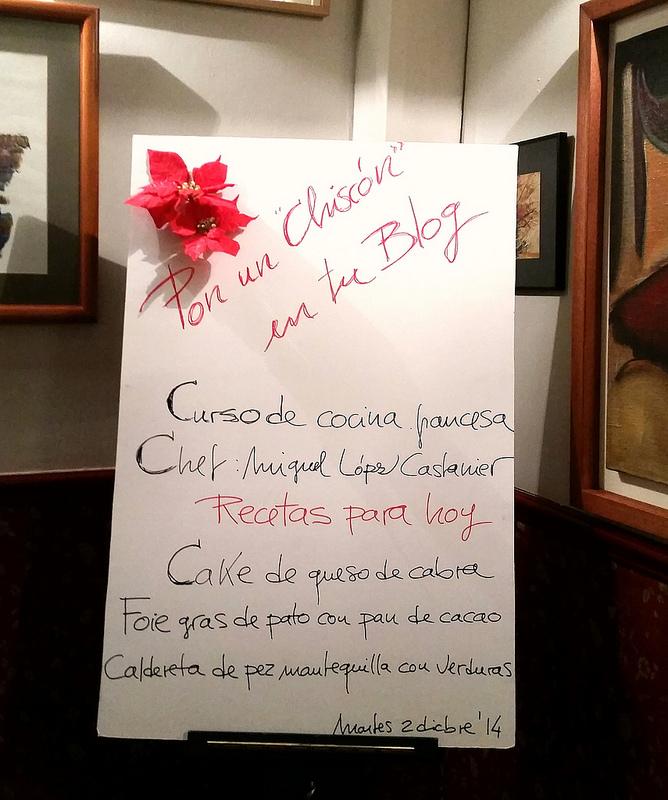 Pon un "Chiscón"
en tu Blog
Curso de cocina francesa
Chef: Miguel López Castanier
Recetas para hoy
Cake de queso de cabra
Foie gras de pato con pan de cacao
Caldereta de pez mantequilla con verduras
Martes 2 dicbre '14